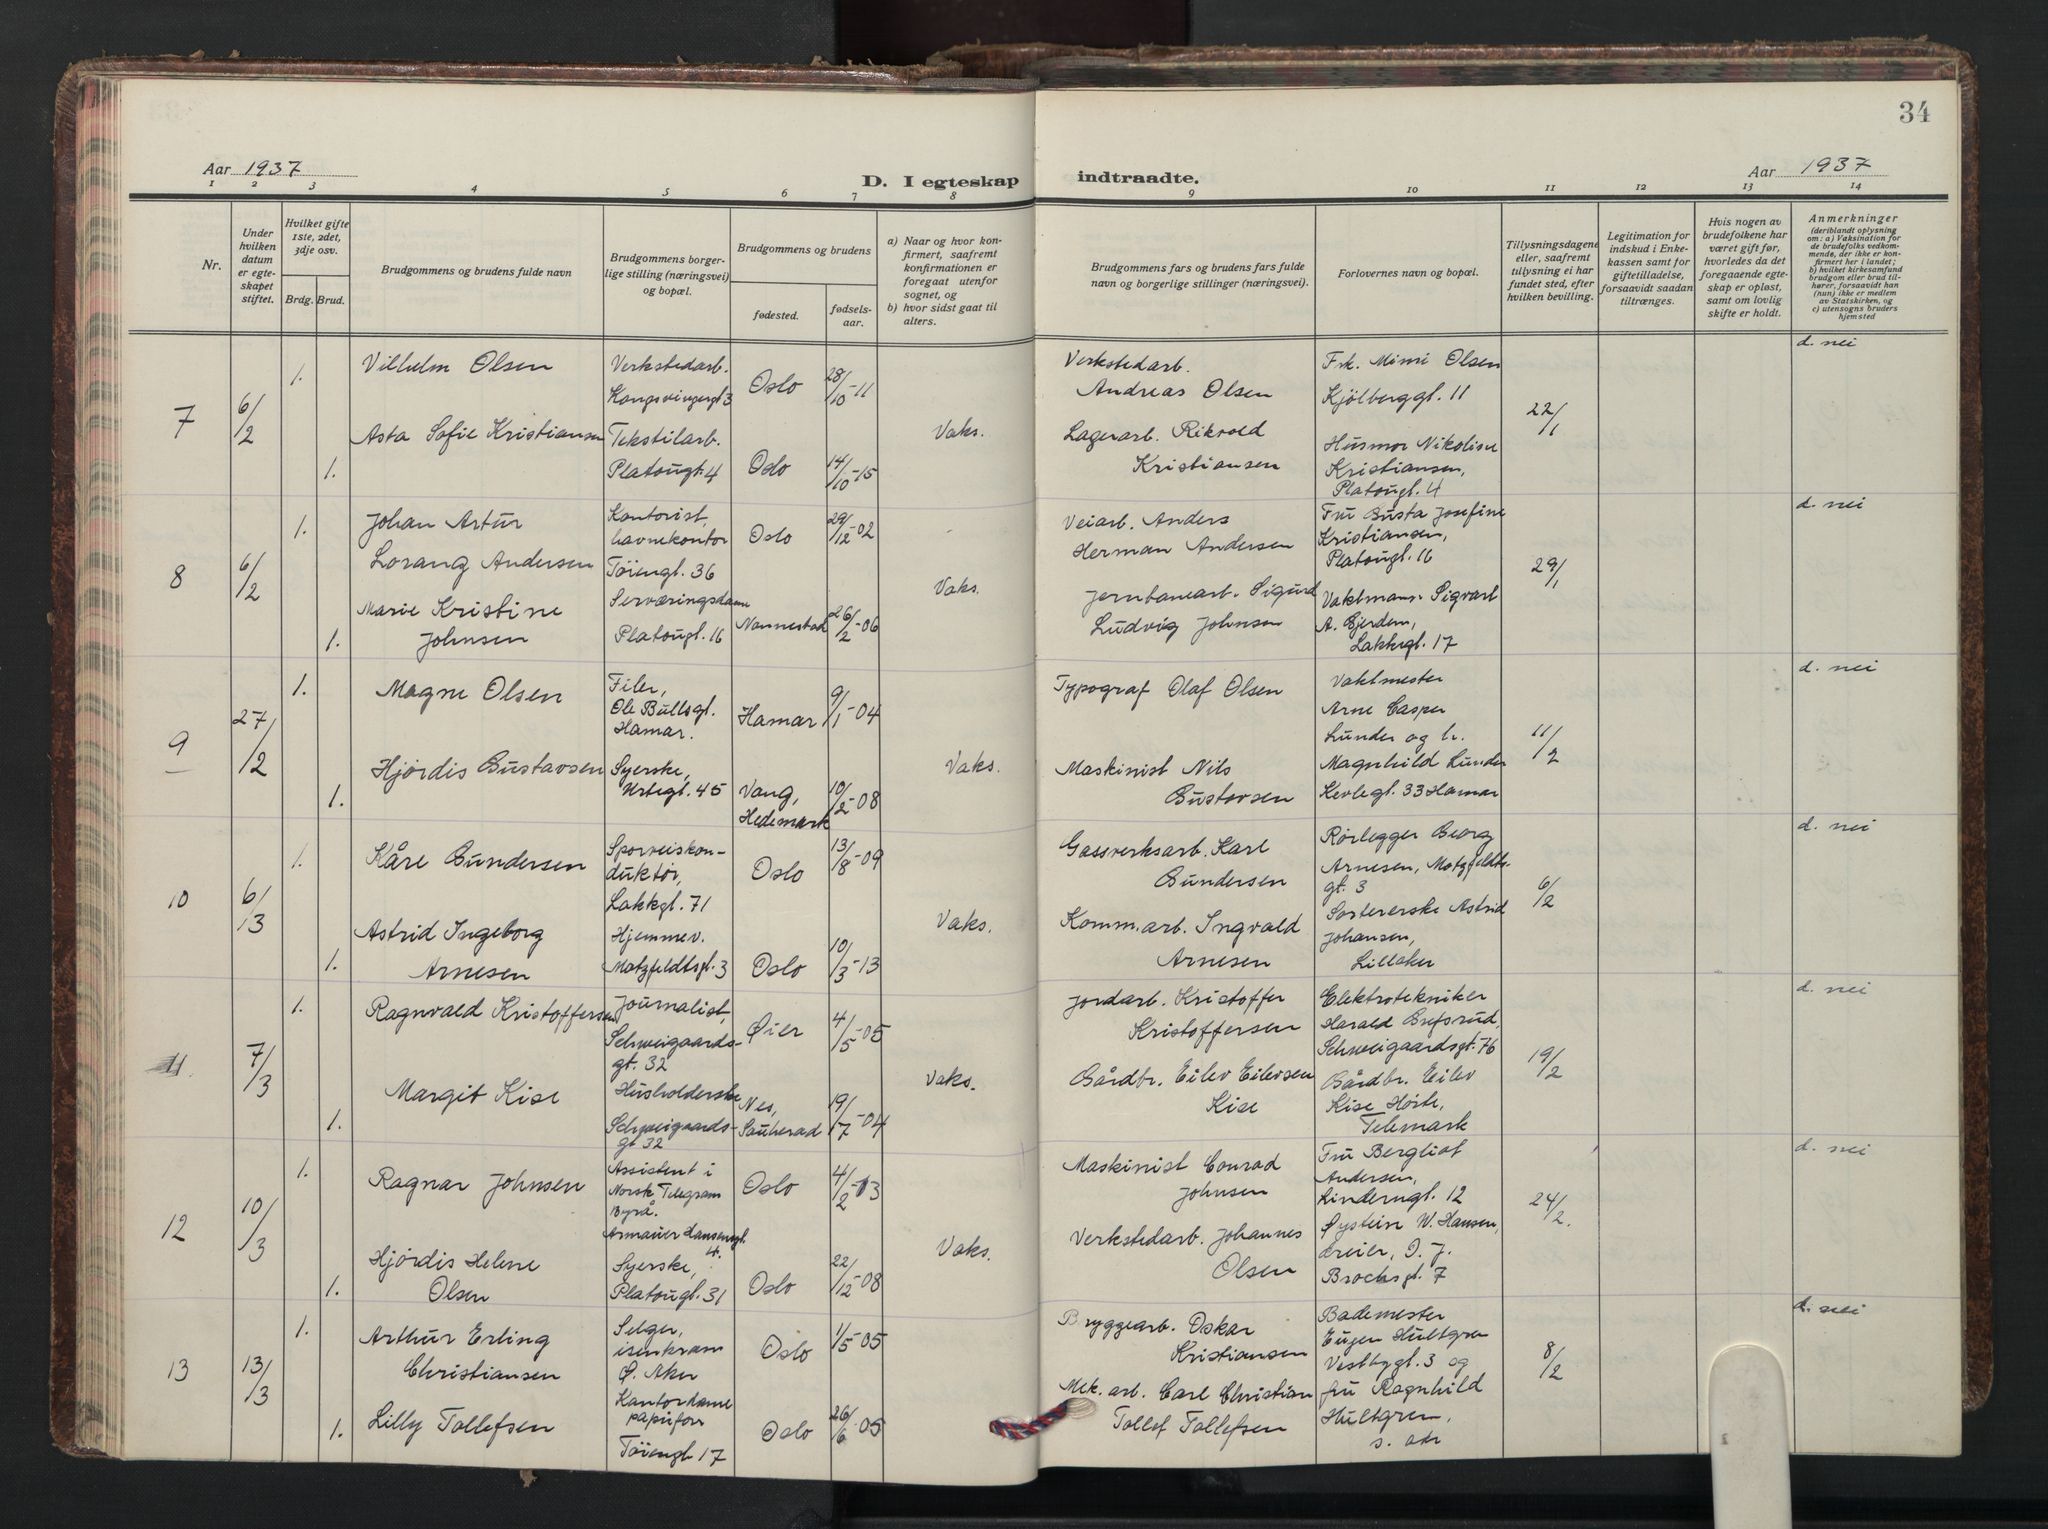 34
Aar 1937
D. I egteskap indtraadte.
Aar 1937
1 2 3 4 5 6 7 8 9 10 11 12 13 14
Nr.
Under hvilken datum er egteskapet stiftet.
Hvilket gifte 1ste, 2det, 3dje osv.
Brdg. Brud.
Brudgommens og brudens fulde navn
Brudgommens borgerlige stilling (næringsvei) og bopæl.
Brudgommens og brudens
fødested.
fødselsaar.
a) Naar og hvor konfirmert, saafremt konfirmationen er foregaat utenfor sognet, og
b) hvor sidst gaat til alters.
Brudgommens fars og brudens fars fulde navn og borgerlige stillinger (næringsvei).
Forlovernes navn og bopæl.
Tillysningsdagene eller, saafremt tillysning ei har fundet sted, efter hvilken bevilling.
Legitimation for indskud i Enkekassen samt for giftetilladelse, forsaavidt saadan tiltrænges.
Hvis nogen av brudefolkene har været gift før, hvorledes da det foregaaende egteskap er opløst, samt om lovlig skifte er holdt.
Anmerkninger
(deriblandt oplysning om: a) Vaksination for de brudefolks vedkommende, der ikke er konfirmert her i landet; b) hvilket kirkesamfund brudgom eller brud tilhører, forsaavidt han (hun) ikke er medlem av Statskirken, og c) utensogns bruders hjemsted
7
6/2
1.
Vilhelm Olsen
Verkstedarb.
Kongsvingergt 3
Oslo
28/10-11
Verkstedarb.
Andreas Olsen
Frk. Mimi Olsen
Kjölberggt. 11
22/1
d. nei
1.
Asta Sofie Kristiansen
Tekstilarb.
Platougt. 4
Oslo
14/10-15
Vaks.
Lagerarb. Rikvold
Kristiansen
Husmor Nikoline
Kristiansen,
Platougt. 4
8
6/2
1.
Johan Artur
Lorang Andersen
Kontorist,
havnekontor
Töiengt. 36
Oslo
29/12-02
Veiarb. Anders
Herman Andersen
Fru Gusta Josefine
Kristiansen,
Platougt. 16
29/1
d. nei
1.
Marie Kristine
Johnsen
Serveringsdame
Platougt. 16
Nannestad
26/2-06
Vaks.
Jernbanearb. Sigurd
Ludvig Johnsen
Vaktmann Sigvart
A. Gjerdem,
Lakkegt. 17
9
27/2
1.
Magne Olsen
Filer,
Ole Bullsgt.
Hamar.
Hamar
9/1-04
Typograf Olaf Olsen
Vaktmester
Arne Casper
Lunder og h.
Magnhild Lunder
11/2
d. nei
1.
Hjördis Gustavsen
Syerske,
Urtegt. 45
Vang,
Hedemark
10/2-08
Vaks.
Maskinist Nils
Gustavsen
33 Hamar
10
6/3
1.
Kåre Gundersen
Sporveiskon-
duktör,
Lakkgt. 71
Oslo
13/8-09
Gassverksarb. Karl
Gundersen
Rörlegger Georg
Arnesen, Motzfeldts-
gt. 3
6/2
d. nei
1.
Astrid Ingeborg
Arnesen
Hjemmev.
Motzfeldtsgt. 3
Oslo
10/3-13
Vaks.
Komm.arb. Ingvald
Arnesen
Sortererske Astrid
Johansen,
Lilleaker
11
7/3
1.
Ragnvald Kristoffersen
Journalist,
Schweigaards-
gt. 32
Øier
4/5-05
Jordarb. Kristoffer
Kristoffersen
Elektrotekniker
Harald
Schweigaardsgt. 76
19/2
d. nei
1.
Margit Kise
Husholderske
Schweigaards-
gt 32
Nes,
Sauherad
19/7-04
Vaks.
Gårdbr. Eilev Eilevsen
Kise
Gårdbr. Eilev
Kise Hörte,
Telemark
12
10/3
1.
Ragnar Johnsen
Assistent i
Norsk Telegram
Byrå.
Armauer Hansensgt.
4.
Oslo
4/2-03
Maskinist Conrad
Johnsen
Fru Bergliot
Andersen,
Linderngt. 12
24/2.
d. nei
1.
Hjördis Helene
Olsen
Syerske,
Platougt. 31
Oslo
22/12-08
Vaks.
Verkstedarb. Johannes
Olsen
Øystein W. Hansen,
dreier, O. J.
Brochsgt. 7
13
13/3
1.
Arthur Erling
Christiansen
Selger,
isenkram
Ø. Aker
Oslo
1/5-05
Bryggearb. Oskar
Kristiansen
Bademester
Eugen Hultgren
Vestbygt. 3 og
8/2
d. nei
1.
Lilly Tollefsen
Kontordame
papirforr
Töiengt 17
Oslo
26/6-05
Mek. arb. Carl Christian
Tollef Tollefsen
fru Ragnhild
Hultgren,
s. adr